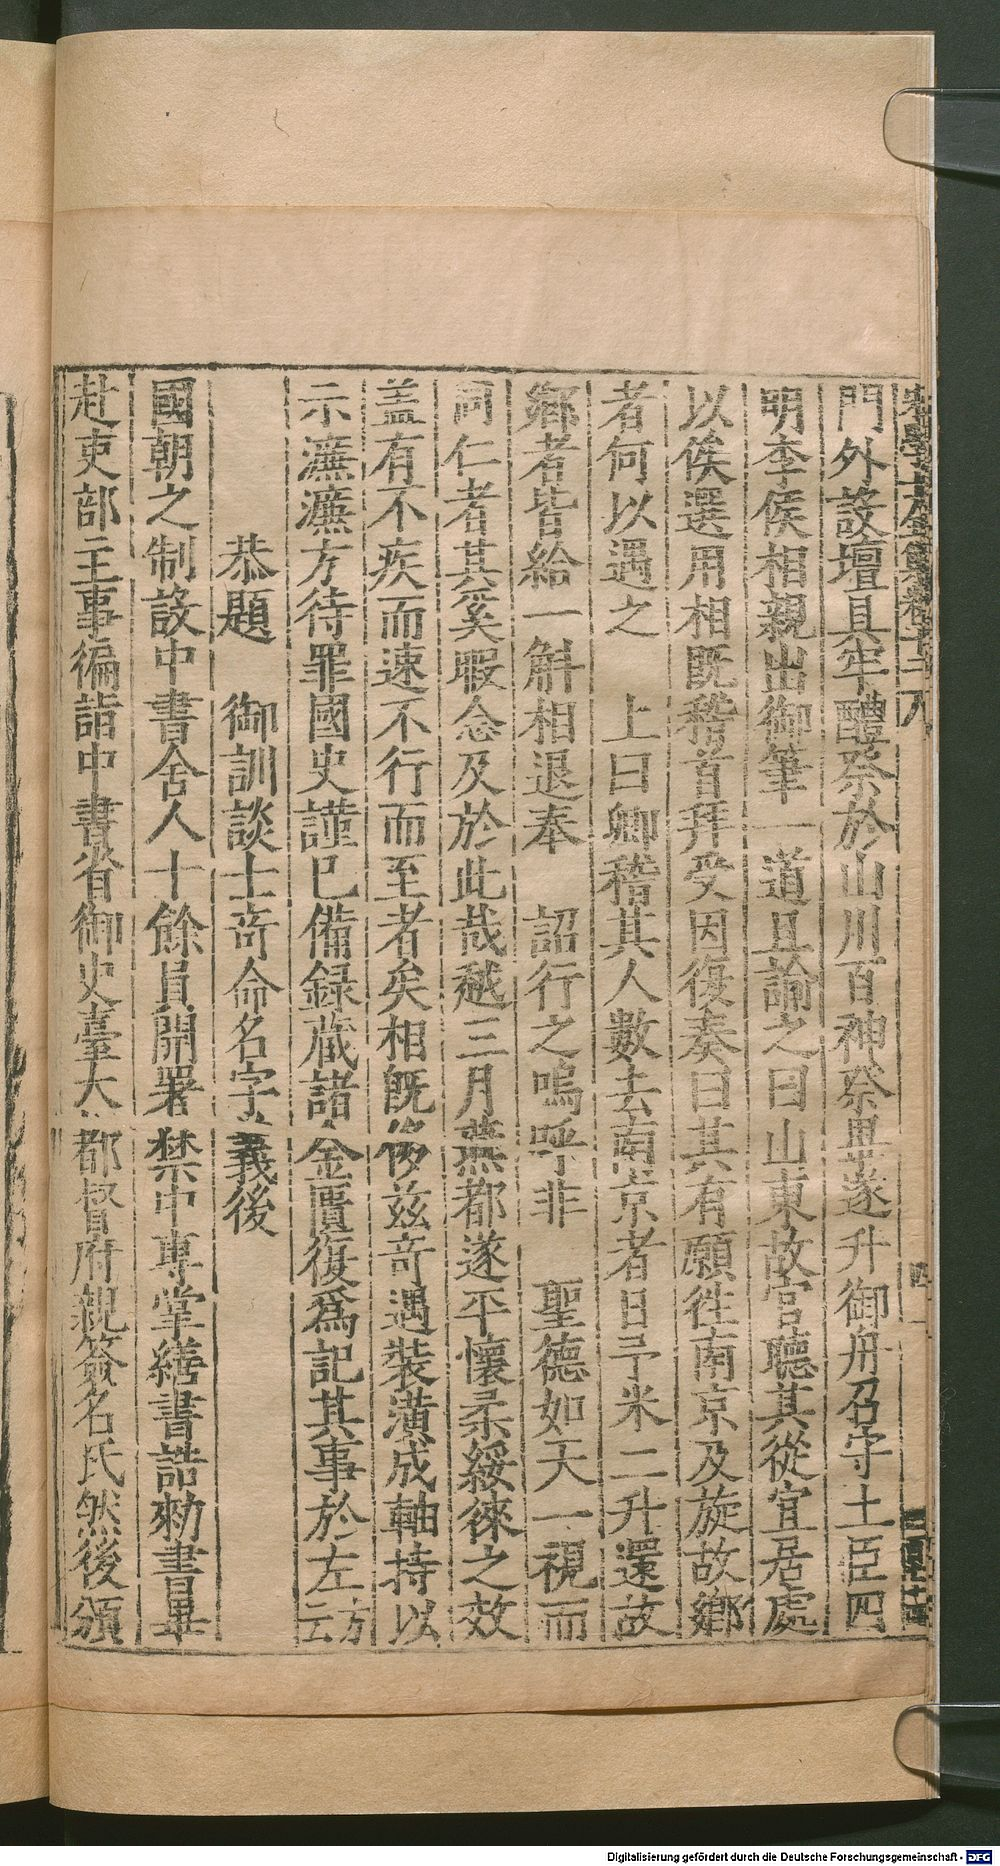 門外設壇具牢醴祭於山川百神祭畢遂升御舟召守土臣四
明李侯相親出御筆一道且諭之曰山東故官聽其從宜居處
以俟選用相既稽首拜受因復奏曰其有願徃南京及旋故鄉
者何以遇之　上曰卿稽其人數去南京者日予米二升還故
鄉者皆給一斛相退奉　詔行之嗚呼非　聖德如天一視而
同仁者其奚暇念及於此哉越三月燕都遂平懷柔綏徠之效
盖有不疾而速不行而至者矣相旣侈兹奇遇裝潢成軸持以
示濂濂方待罪國史謹已備録蔵諸金匱復爲記其事於左方云
恭題　御訓談士奇命名字義後
國朝之制設中書舍人十餘員開署禁中専掌繕書誥勑書畢
赴吏部主事徧詣中書省御史臺大都督府親簽名氏然後頒
Digitalisierung gefördert durch die Deutsche Forschungsgemeinschaft - DFG